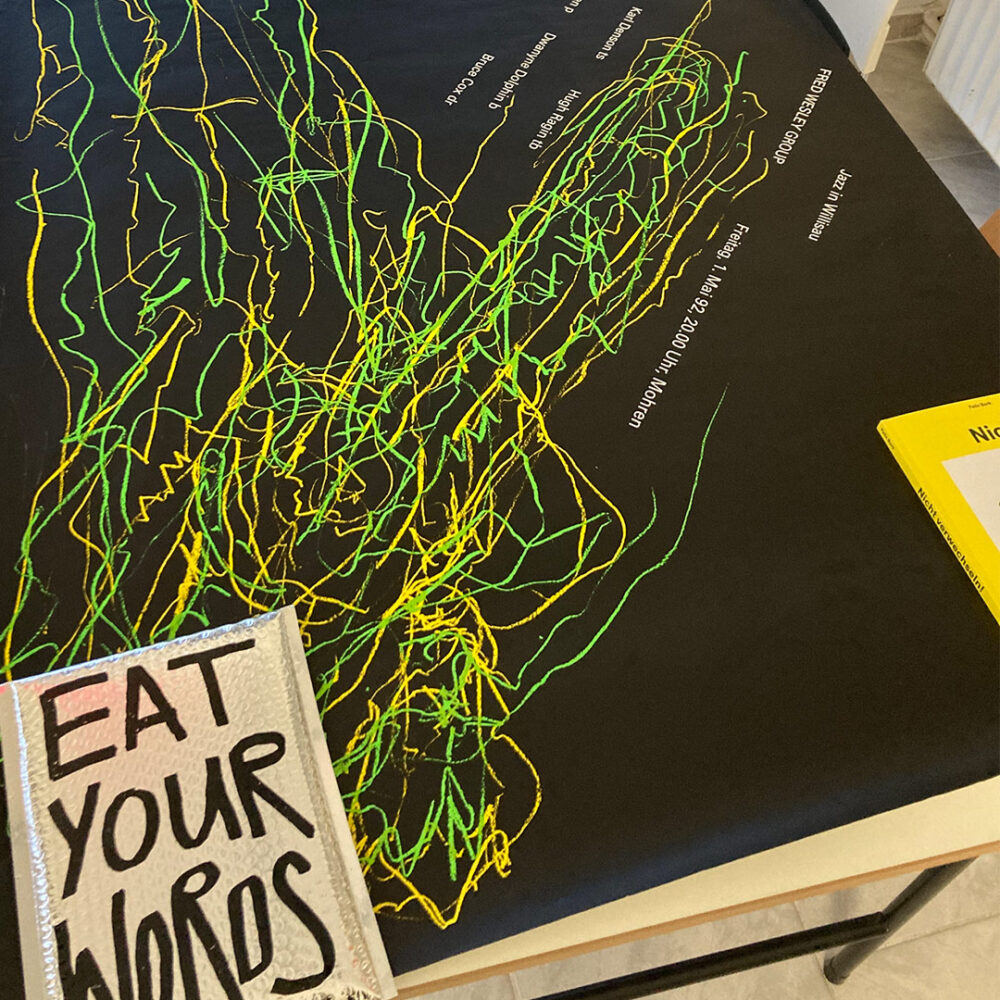 Karl Denson ts
Dwanyne Dolphin b
Bruce Cox dr
Hugh Ragin tb
FRED WESLEY GROUP
Jazz in Willisau
Freitag, 1. Mai 92, 20.00 Uhr, Mohren
Nicht verwechseln!
EAT
YOUR
WORDS